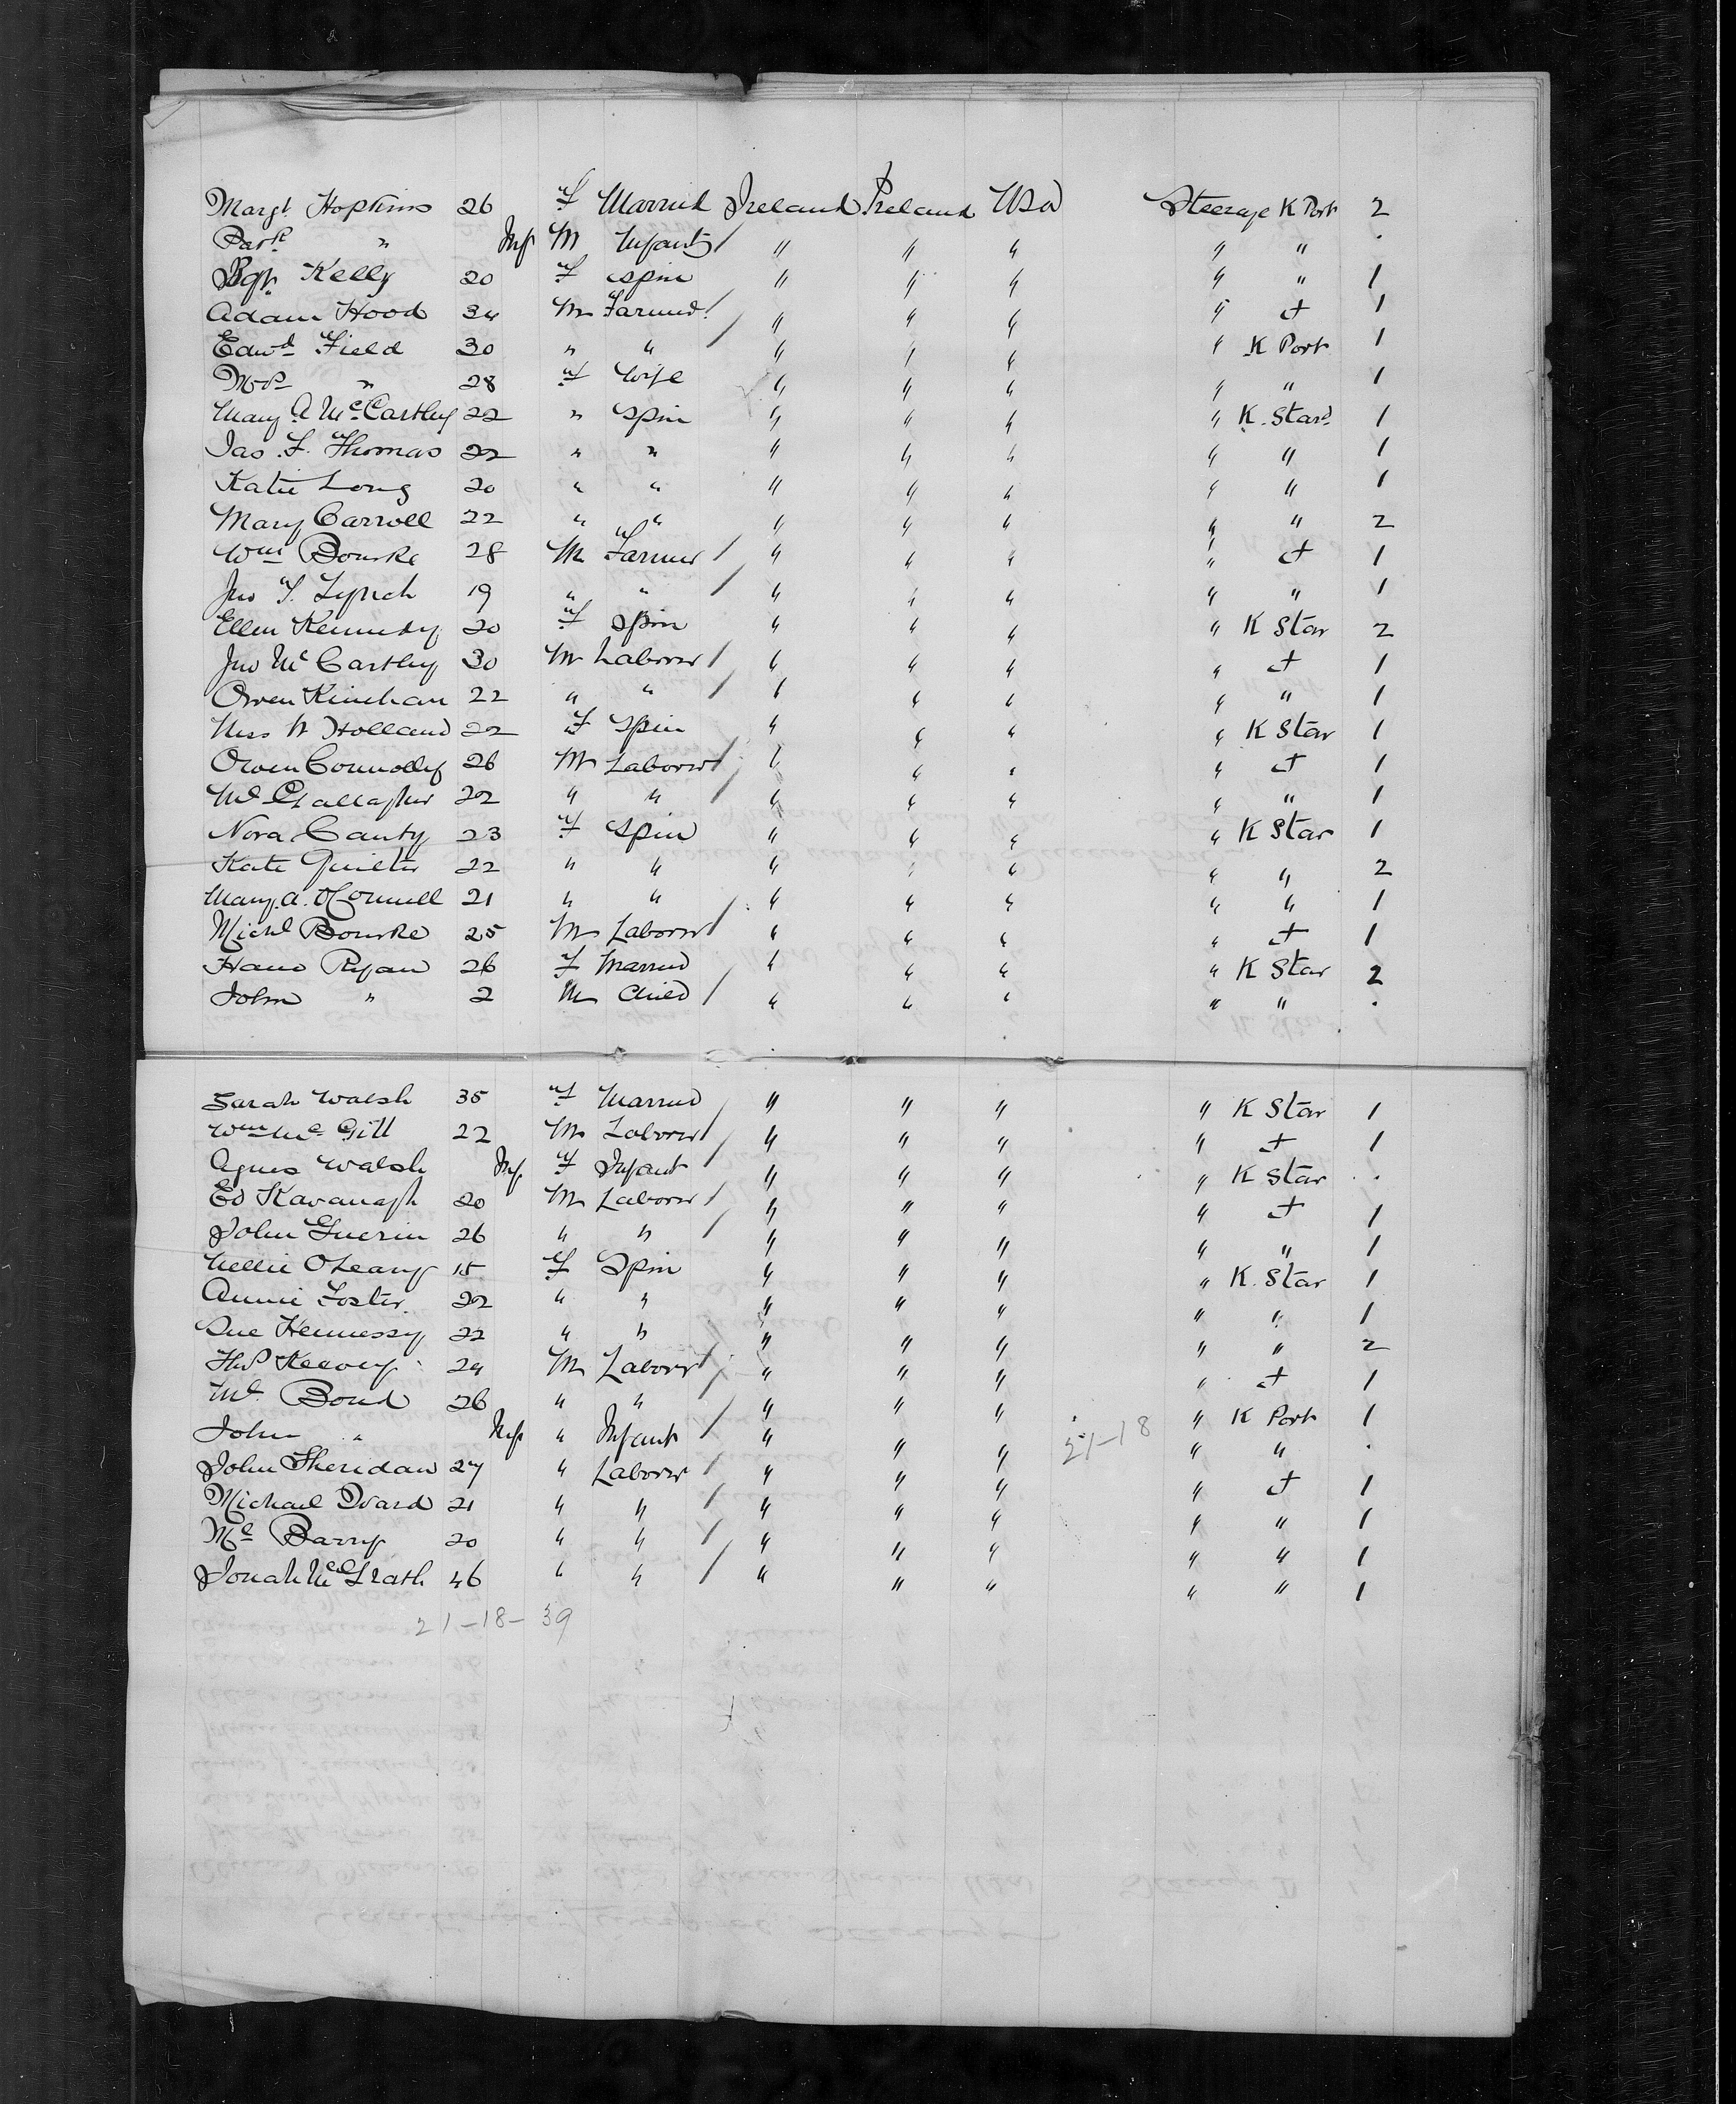 Margt Hopkins 26 f Married Ireland Ireland USA Steerage K Port 2
Patk " Inf M Infant / " " " " " .
Bgt Kelly 20 f Spin " " " " " 1
Adam Hood 34 M Farmer / " " " " + 1
Edwd Field 30 " " / " " " " K Port 1
Mrs " 28 f Wife " " " " " 1
Mary A McCarthy 22 " Spin " " " " K. Stard 1
Jas. F. Thomas 22 " " " " " " " 1
Katie Long 20 " " " " " " " 1
Mary Carroll 22 " " " " " " " 2
Wm Bourke 28 M Farmer / " " " " + 1
Jno T. Lynch 19 " " / " " " " " 1
Ellen Kennedy 20 f Spin " " " " K Star 2
Jno McCarthy 30 M Laborer / " " " " + 1
Owen Kinehan 22 " " / " " " " " 1
Miss N Holland 22 f Spin " " " " K Star 1
Owen Connolly 26 M Laborer / " " " " + 1
Ml Gallagher 22 " " / " " " " " 1
Nora Canty 23 f Spin " " " " K Star 1
Kate Quilter 22 " " " " " " " 2
Mary. A. O'Connell 21 " " " " " " " 1
Michl Bourke 25 M Laborer / " " " " + 1
Hano Ryan 26 f Married " " " " K Star 2
John " 2 M Child / " " " " " .
Sarah Walsh 35 f Married " " " " K Star 1
Wm McGill 22 M Laborer / " " " " + 1
Agnes Walsh Inf f Infant " " " " K Star .
Ed Kavanagh 20 M Laborer / " " " " + 1
John Guerin 26 " " / " " " " " 1
Nellie OLeary 15 f Spin " " " " K. Star 1
Annie Foster. 22 " " " " " " " 1
Sue Hennessy 22 " " " " " " " 2
Thos 24 M Laborer / " " " " + 1
Ml Bond 26 " " / " " " " K Port 1
John " Inf " Infant / " " " 21-18 " " .
John Sheridan 27 " Laborer / " " " " + 1
Michael Ward 21 " " / " " " " " 1
Ml Barry 20 " " / " " " " " 1
Jonah McGrath 46 " " / " " " " " 1
21-18-39